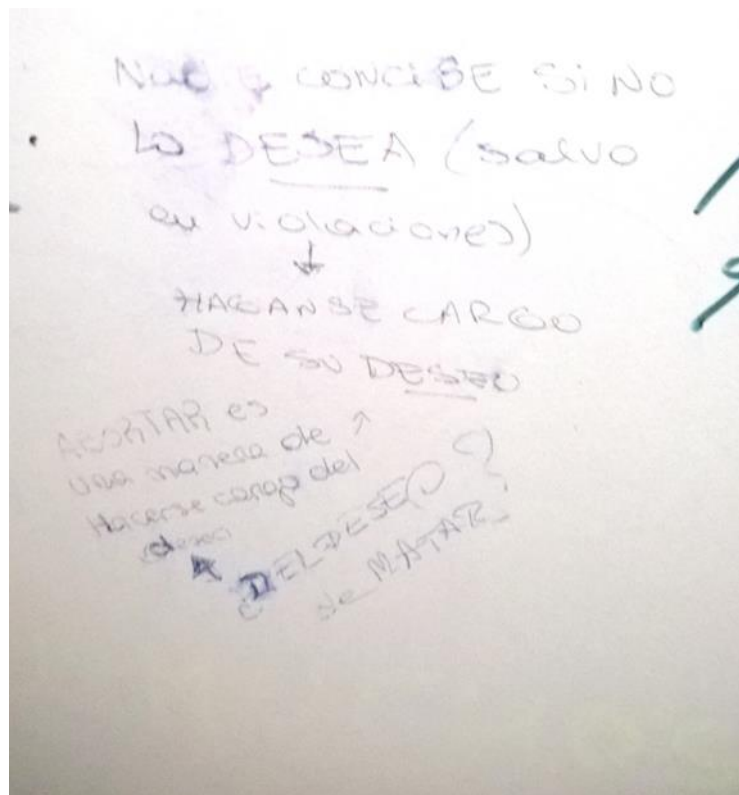 NADIE CONCIBE Si NO
LO DESEA (salvo
en violaciones)
↓
HAGANSE CARGO
DE SU DESEO
ABORTAR es
una manera de
Hacerse cargo del
deseo
¿DEL DESEO
de MATAR?